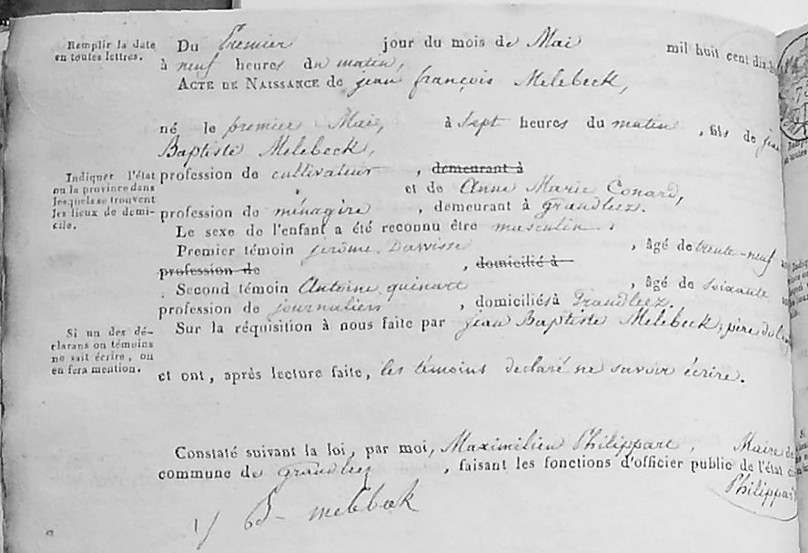 Remplir la date
en toutes lettres.
Du Premier jour du mois de Mai mil huit cent dix
à neuf heures du matin,
ACTE DE NAISSANCE de jean françois Melebeck,
né le premier Mai, à Sept heures du matin, fils de jean
Baptiste Melebeck,
Indiquer l'état
ou la province dans
lesquels se trouvent
les lieux de domi-
cile.
profession de cultivateur, demeurant à
et de Anne Marie Conard,
profession de ménagère, demeurant à grandleez.
Le sexe de l'enfant a été reconnu être masculin.
Premier témoin jerôme Dawisse, âgé de trente-neuf
profession de, domicilié à
Second témoin Antoine quinart, âgé de soixante
profession de journaliers, domiciliés à Grandleez.
Si un des dé-
clarans ou témoins
ne sait écrire, on
en fera mention.
Sur la réquisition à nous faite par jean Baptiste Melebeck, père de
et ont, après lecture faite, les témoins declaré ne savoir écrire.
Constaté suivant la loi, par moi, Maximilien Philippart, Maire de
commune de grandleez, faisant les fonctions d'officier public de l'état
Philippart
j B melebeck